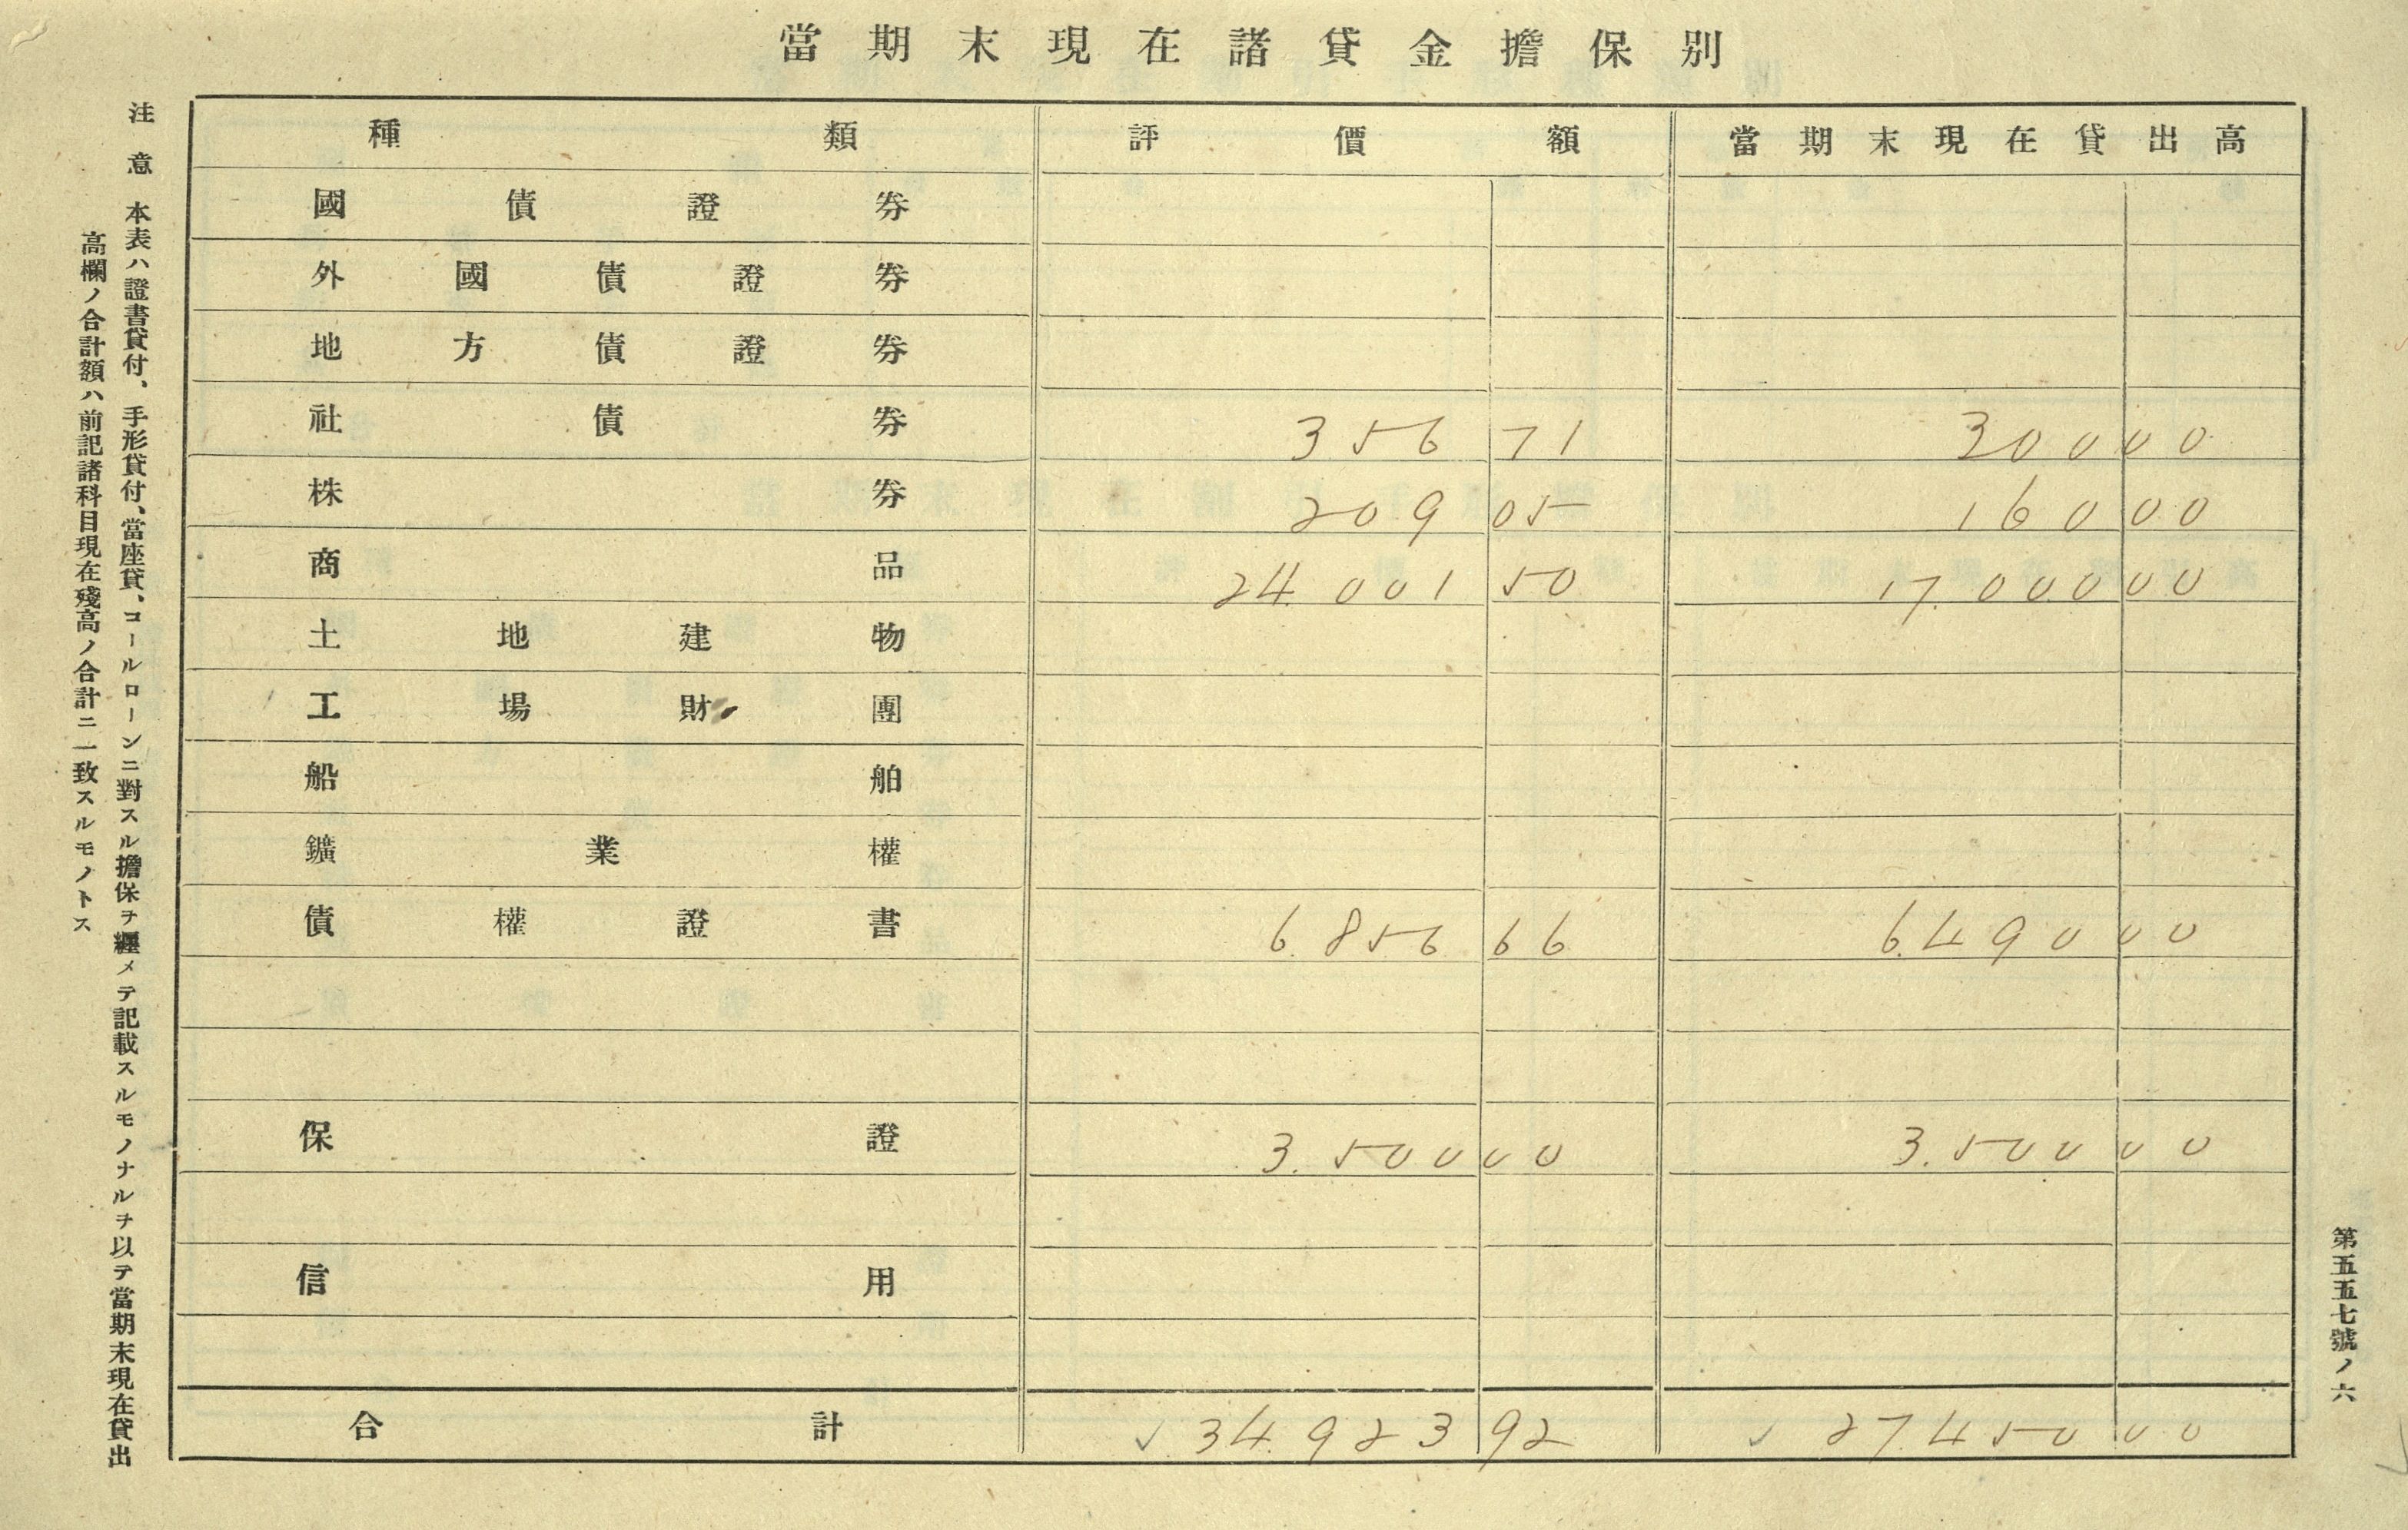 當期末現在諸貸金擔保別
種類 評價額 當期末現在貸出高
國債證券
外國債證券
地方債證券
社債券 356 71 300 00
株券 209 05 160 00
商品 24.001 50 17.000 00
土地建物
工場財團
船舶
鑛業權
債權證書 6.856 66 6.490 00
保證 3.500 00 3.500 00
信用
合計 ✓ 34.923 92 ✓ 27.450 00
第五五七號ノ六
注意 本表ハ證書貸付、手形貸付、當座貸、コールローンニ對スル擔保ヲ纒メテ記載スルモノナルヲ以テ當期末現在貸出
高欄ノ合計額ハ前記諸科目現在殘高ノ合計ニ一致スルモノトス